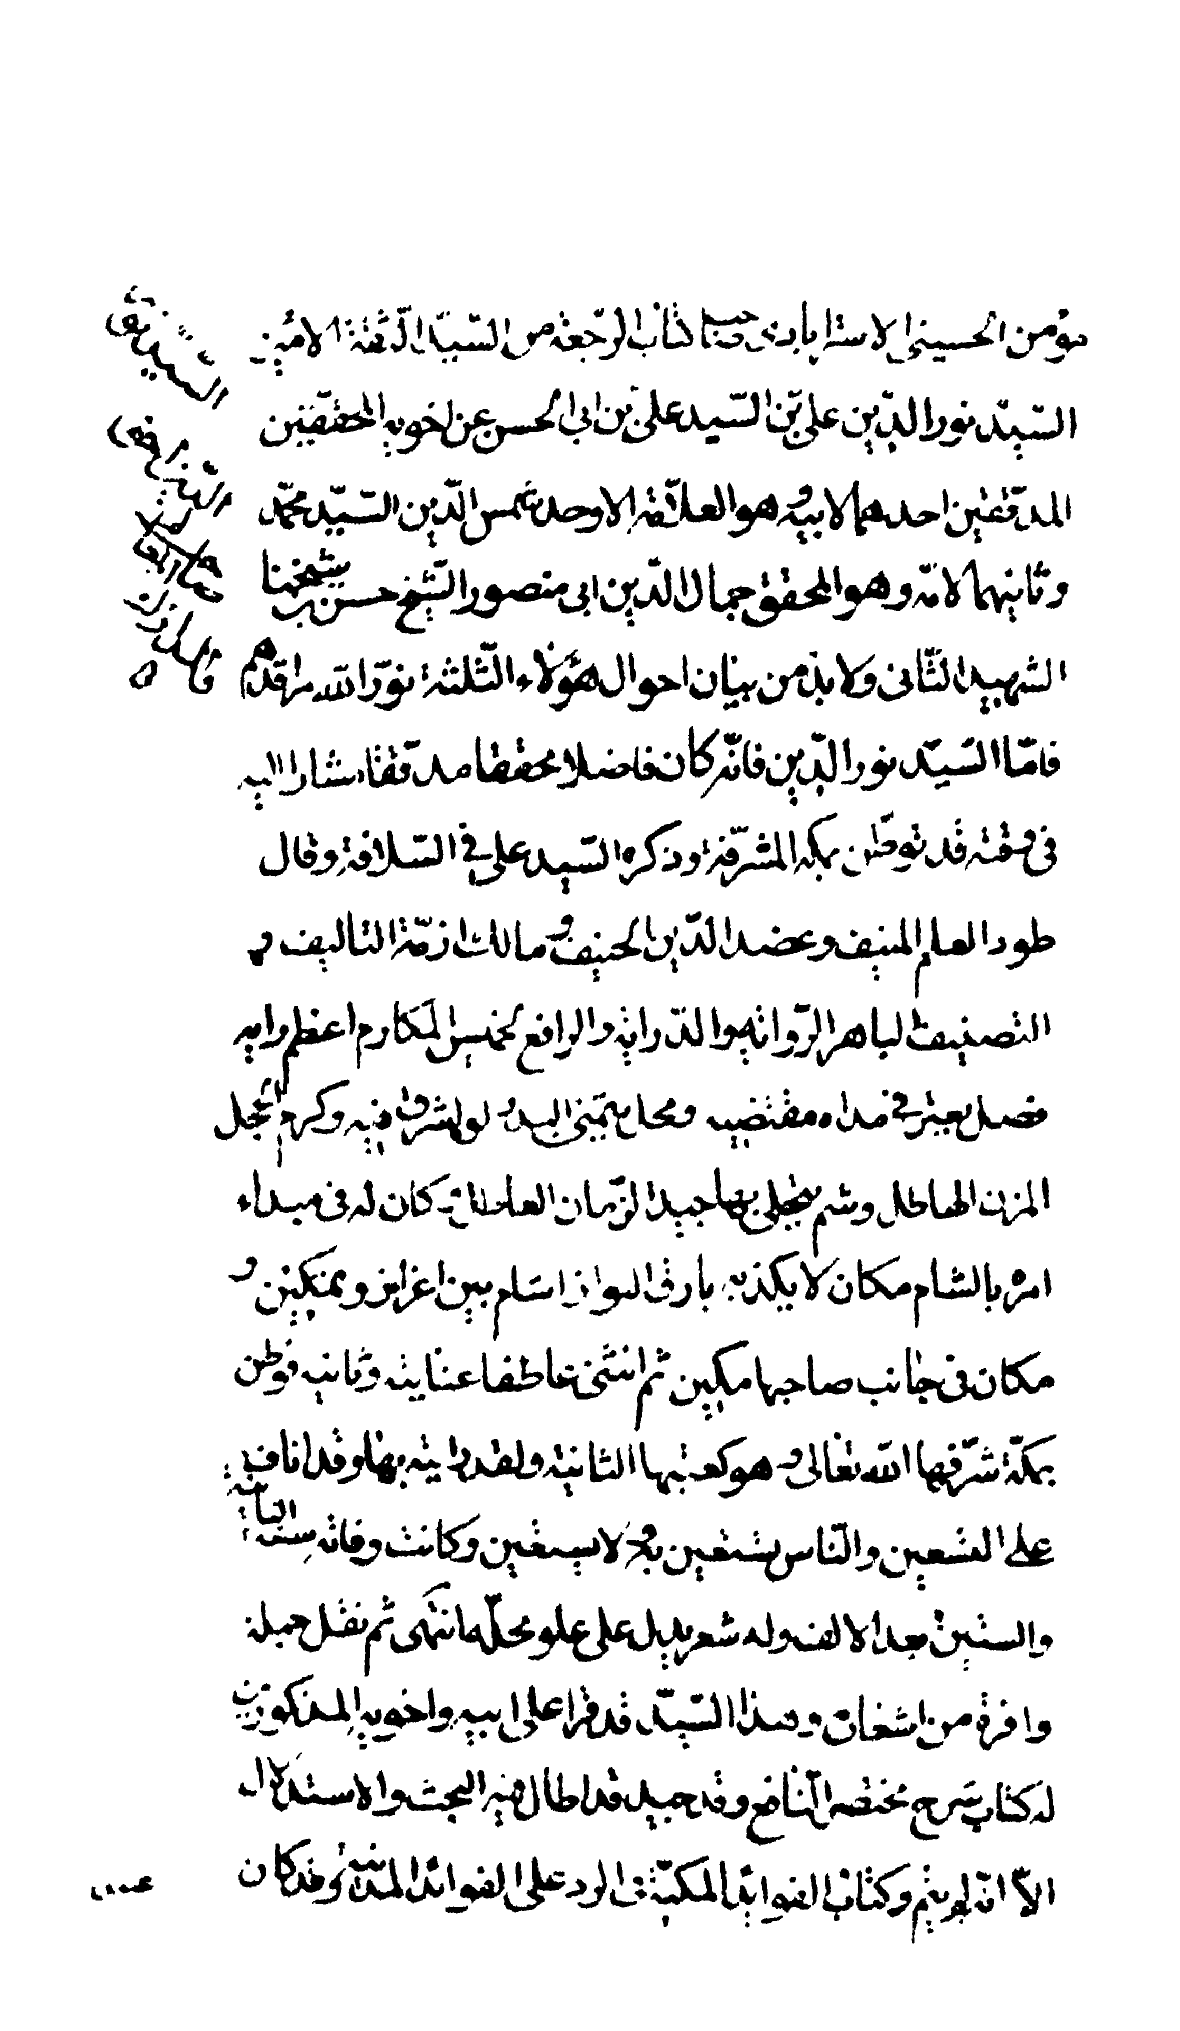 مؤمن الحسيني الاسترابادي صاحب كتاب الرجعة عن السيد الثقة الامين
السّيّد نور الدّين علي بن السّيد علي بن ابي الحسن عن اخويه المحققين
المدققين احدهما لابيه وهو العلامة الاوحد شمس الدّين السّيّد محمّد
وثانيهما لامّه وهو المحقق جمال الدّين ابي منصور الشّيخ حسن بن شيخنا
الشهيد الثّاني ولا بدّ من بيان احوال هؤلاء الثّلثة نوّر الله مراقدهم
فامّا السّيّد نور الدّين فانّه كان فاضلا محققا مدقّقا مشارا اليه
في وقته قد توطّن بمكة المشرّفة وذكره السّيد علي في السّلافة وقال
طود العلم المنيف وعضد الدّين الحنيف ومالك ازمّة التاليف و
التصنيف الباهر بالرّواية والدّراية والرافع لخميس المكارم اعظم راية
فضل يعثر في مداه مقتفيه ومحل يتمنى البدر لو اشرق فيه وكرم يخجل
المزن الهاطل وشيم يتحلى بها جيد الزّمان العاطل كان له في مبداء
امره بالشام مكان لا يكذبه بارق العز اذا شام بين اعزاز وتمكين و
مكان في جانب صاحبها مكين ثم انثنى عاطفا عنانه وثانيه فوطن
بمكّة شرّفها الله تعالى وهو كعبتها الثانية ولقد رايته بها وقد اناف
على التسعين والنّاس تستعين به ولا يستعين وكانت وفاته سنة الثامنة
والستين بعد الالف وله شعر يدل على علو محلّه انتهى ثم نقل جملة
وافرة من اشعاره وهذا السّيّد قد قرا على ابيه واخويه المذكورين
له كتاب شرح مختصر النّافع وقد جيد قد اطال فيه البحث والاستدلال
الاّ انّه لم يتم وكتاب الفوائد المكيّة في الرد على الفوائد المدنية وقد كان